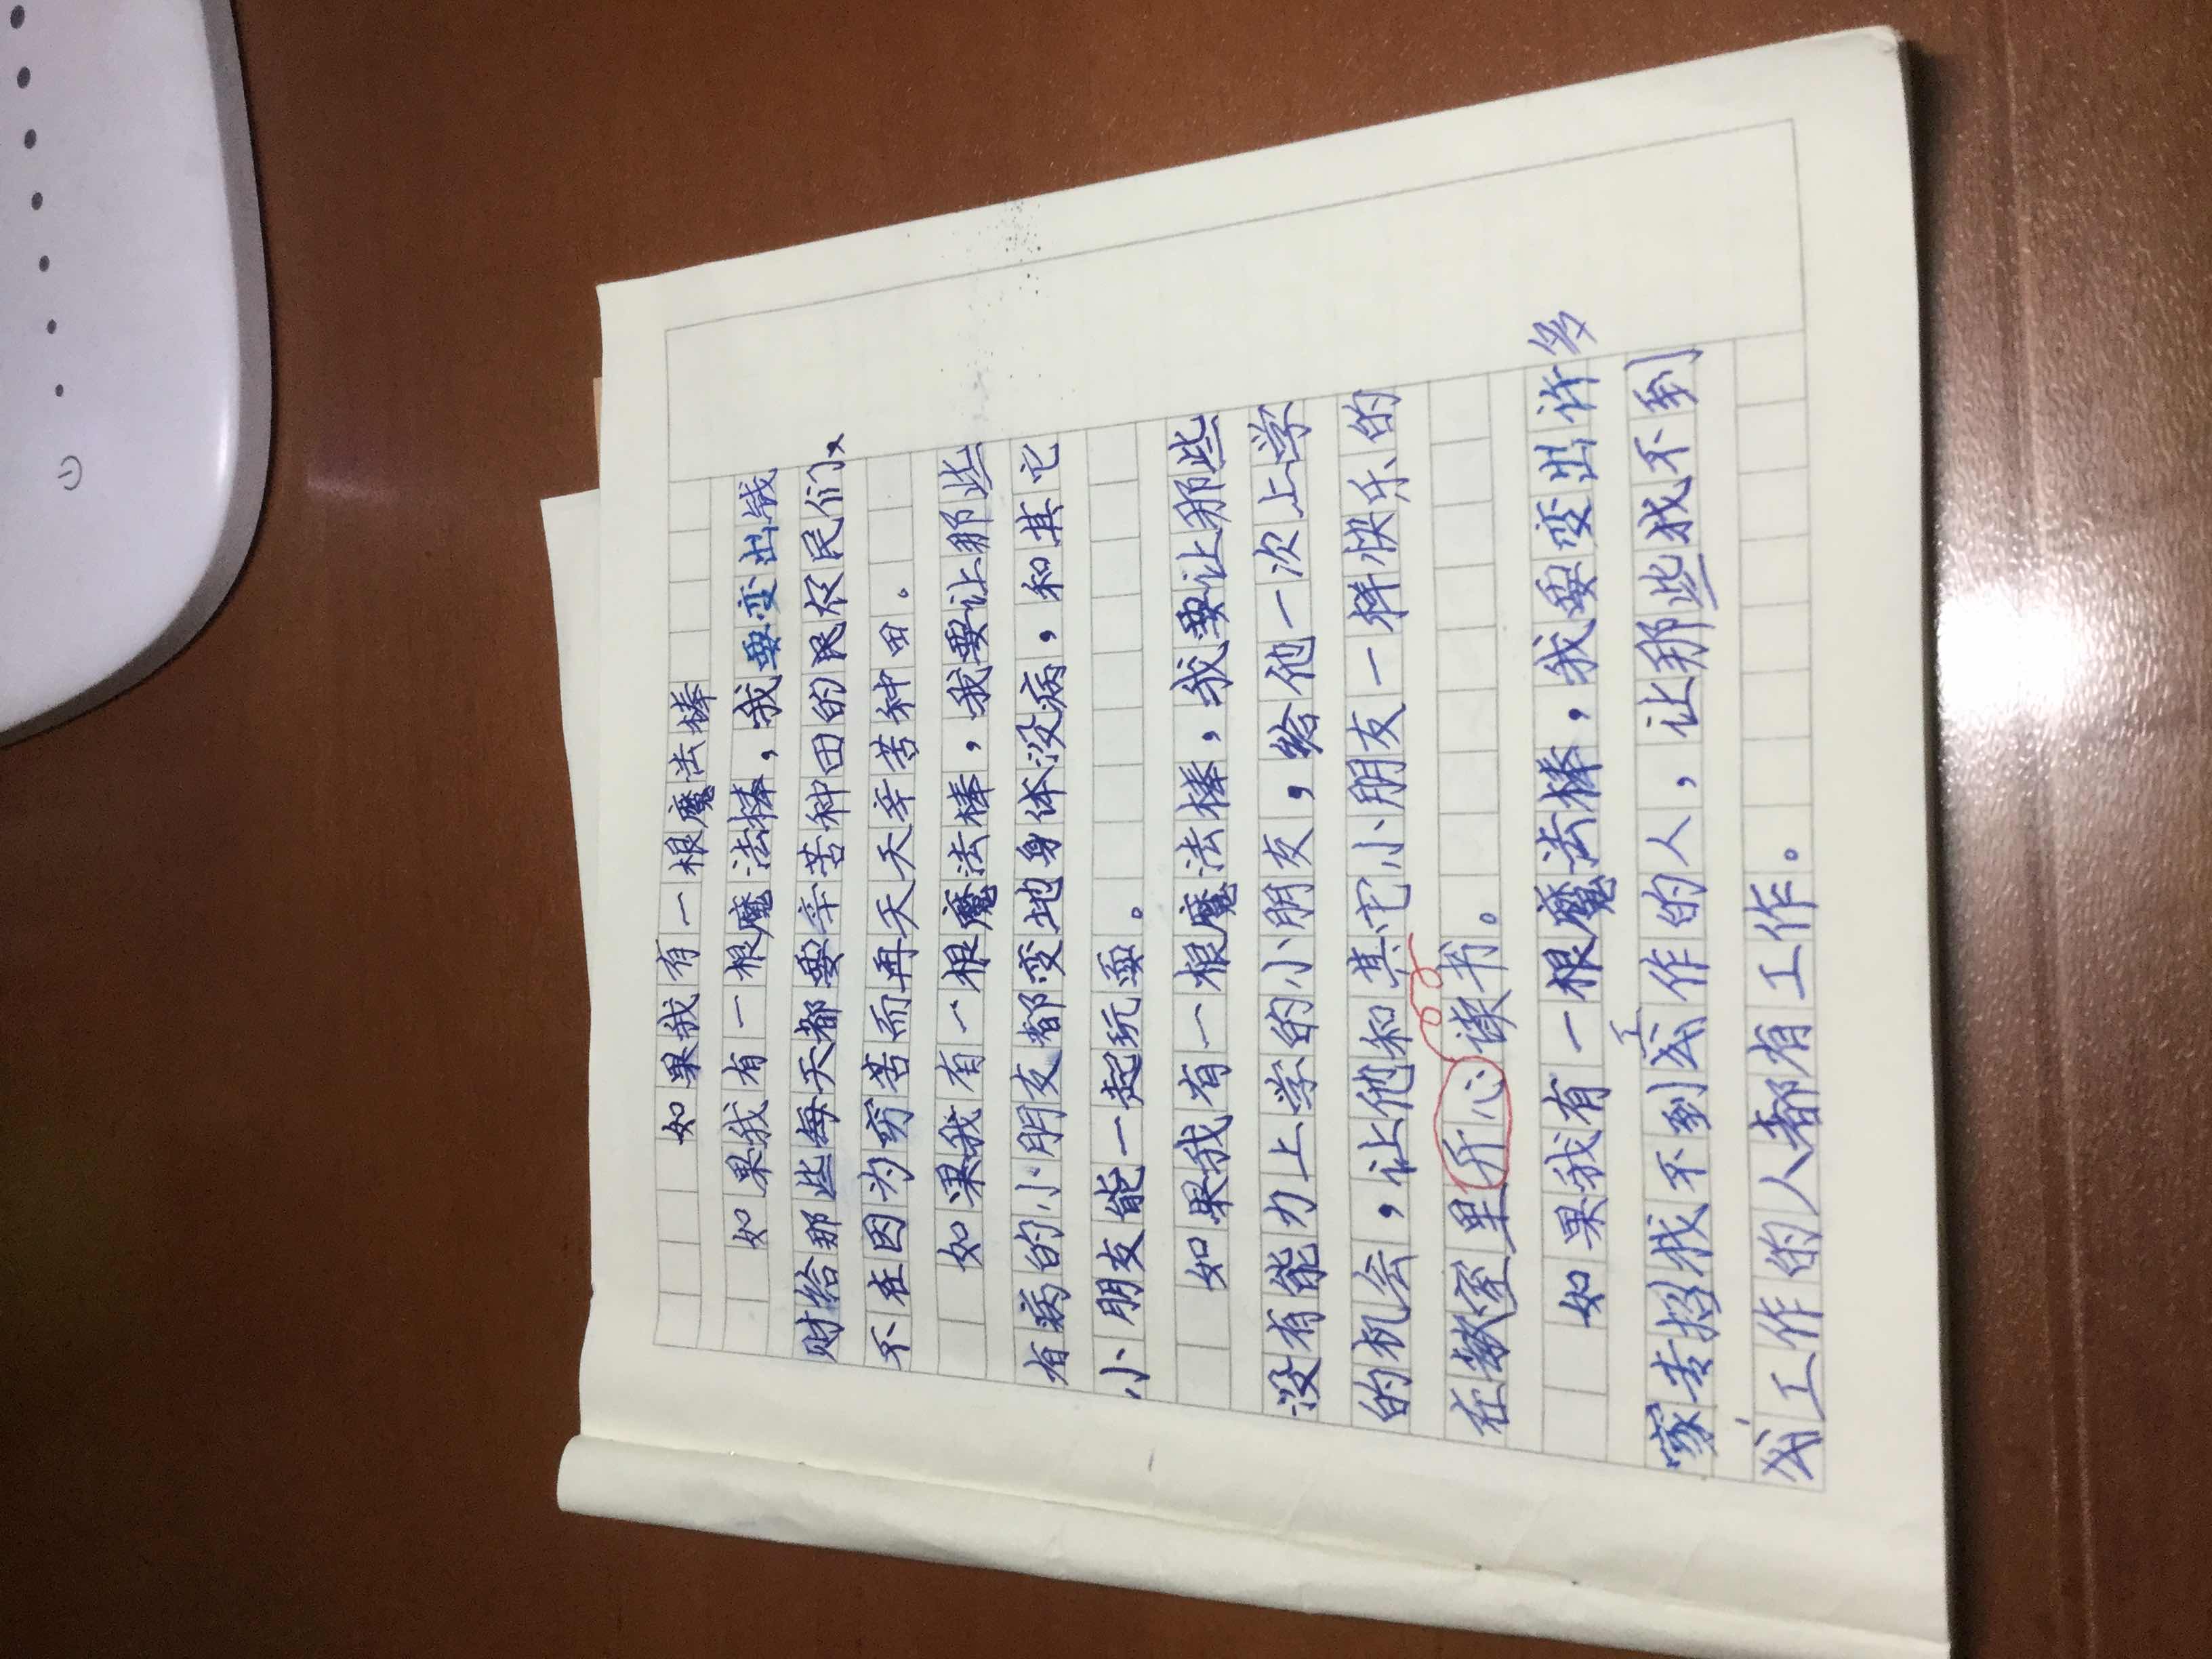 如果我有一根魔法棒
如果我有一根魔法棒，我要变出钱
财给那些每天都要辛苦种田的民农民们、
不在因为穷苦而再天天天辛苦种田。
如果我有一根魔法棒，我要让那些
有病的小朋友都变地身体没病，和其它
小朋友能一起玩耍。
如果我有一根魔法棒，我要让那些
没有能力上学的小朋友，给他一次上学
的机会，让他和其它小朋友一样快乐的
在教室里开心读书。
如果我有一根魔法棒，我要变出许多
家专招找不到工作的人，让那些找不到
工作的人都有工作。